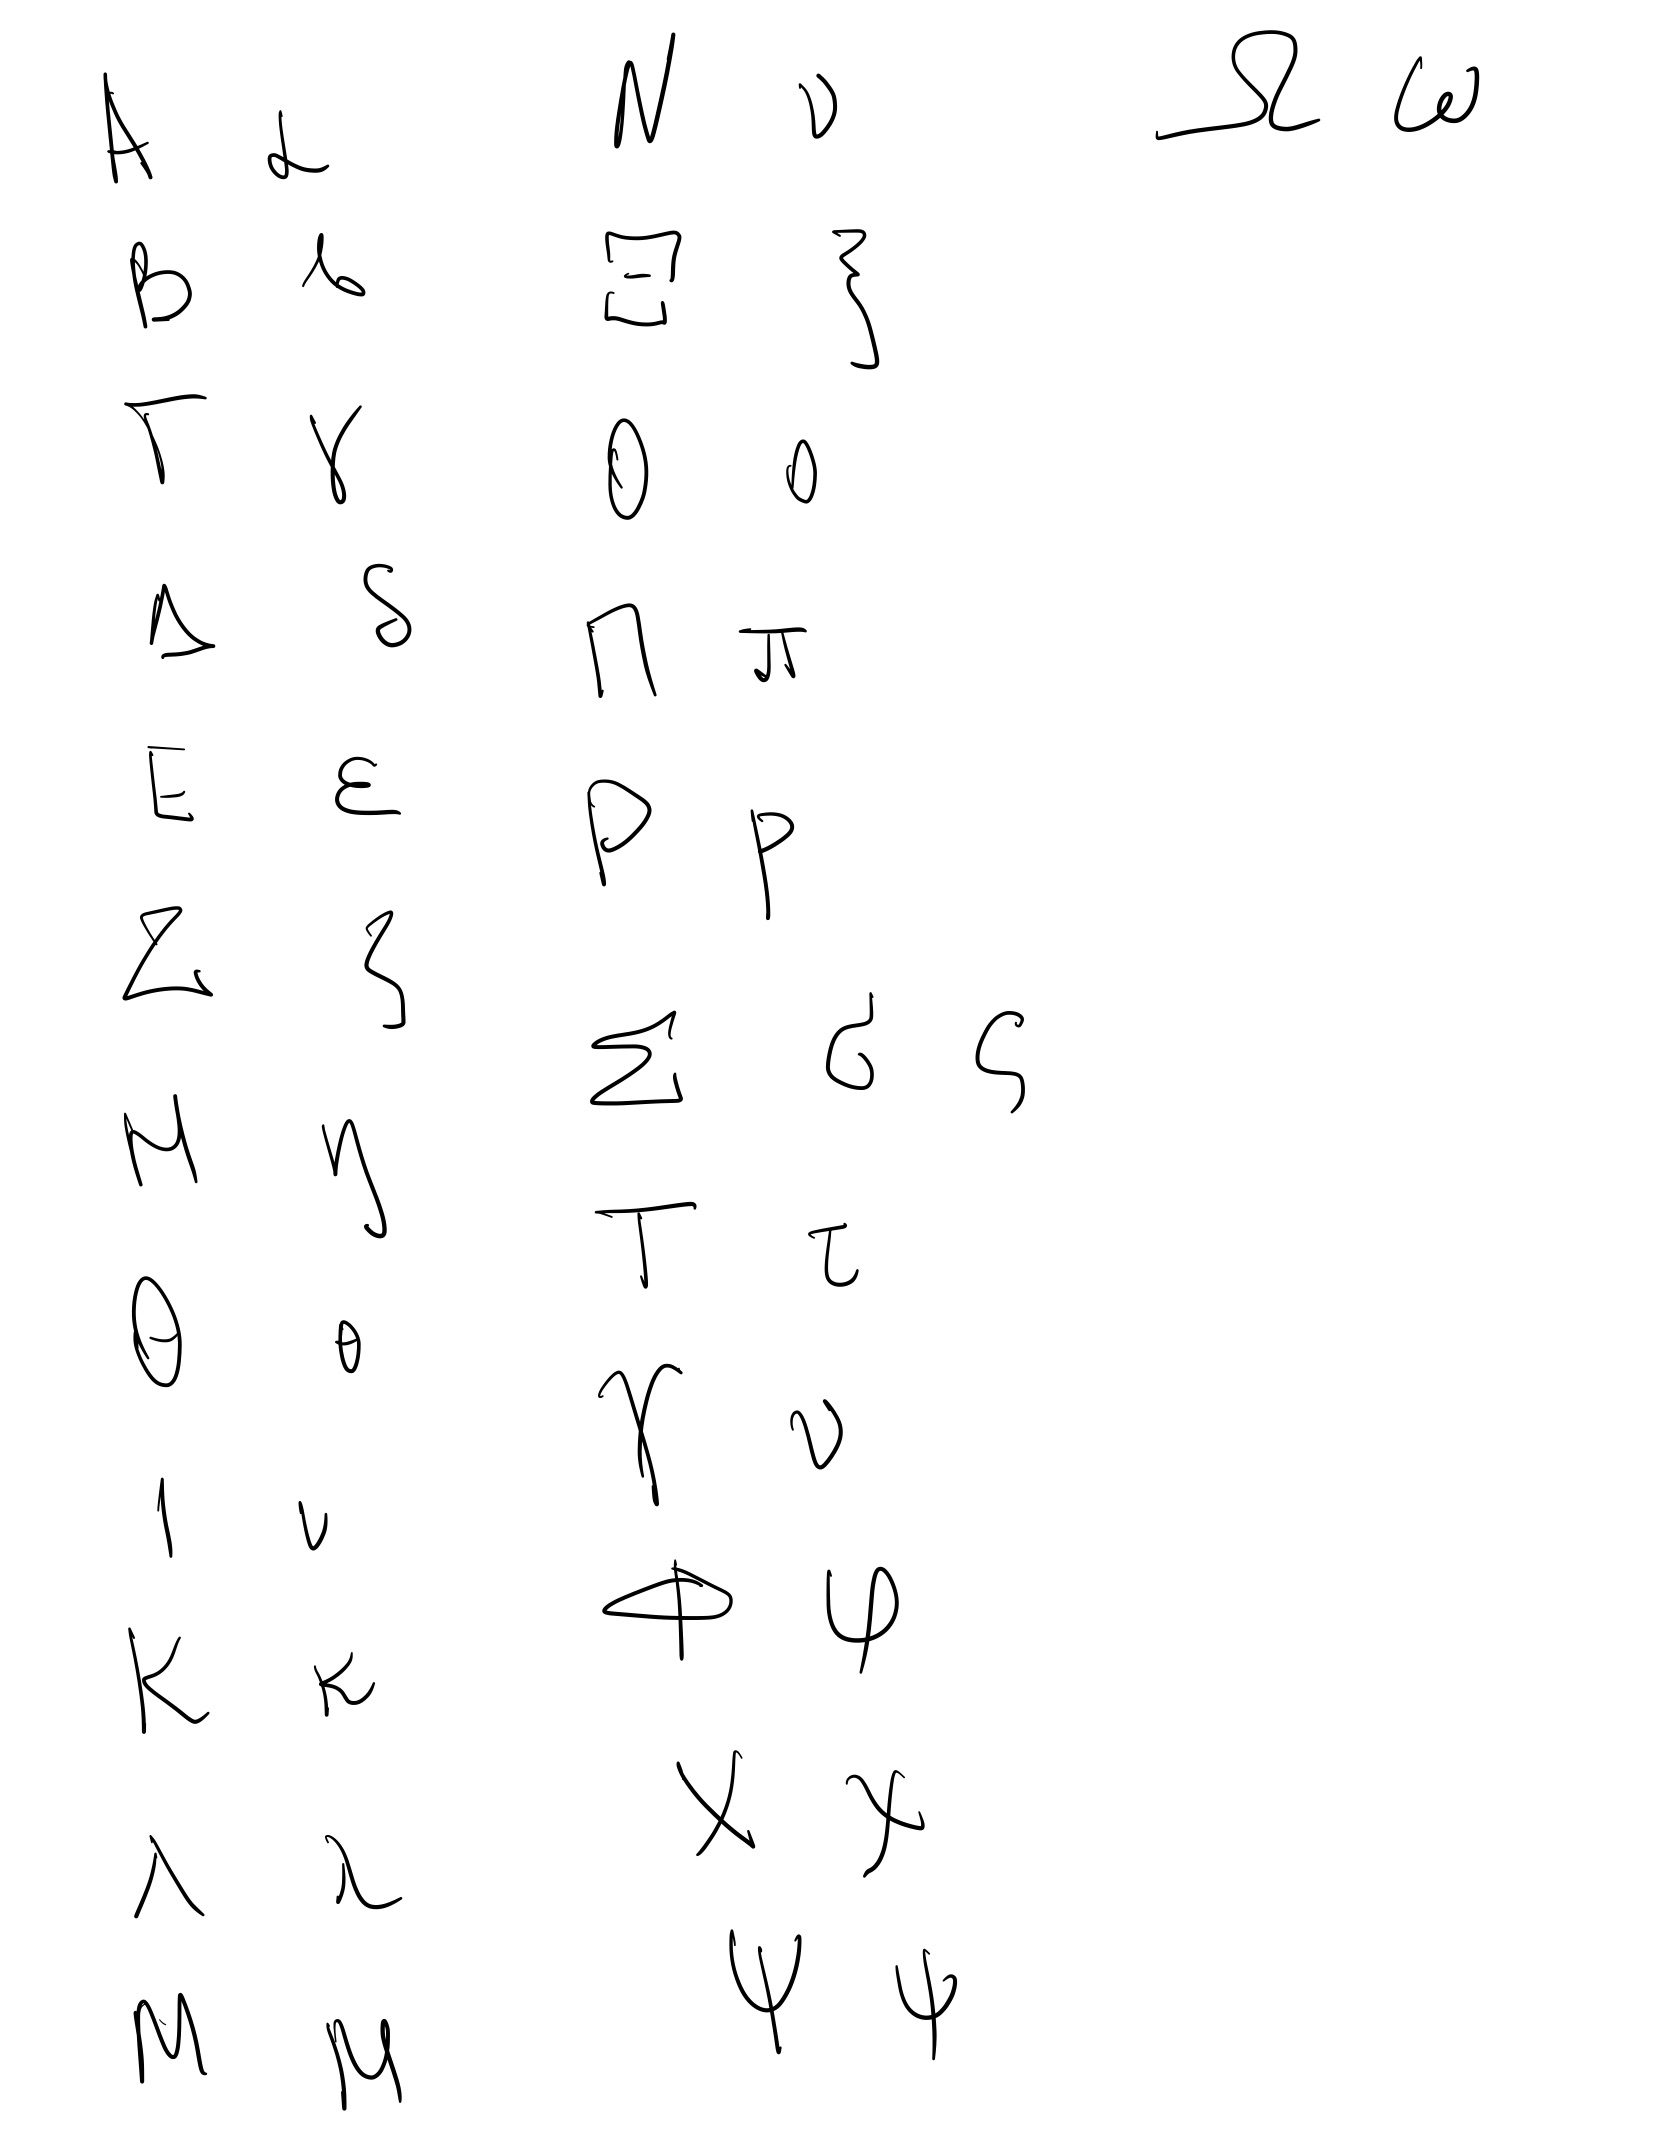 Α α
Β β
Γ γ
Δ δ
Ε ε
Ζ ζ
Η η
Θ θ
Ι ι
Κ κ
Λ λ
Μ μ
Ν ν
Ξ ξ
Ο ο
Π π
Ρ ρ
Σ σ ς
Τ τ
Υ υ
Φ φ
Χ χ
Ψ ψ
Ω ω